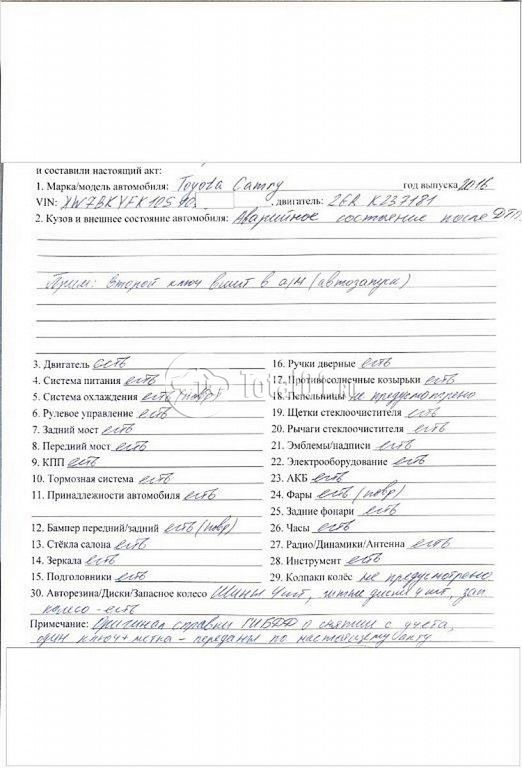 и составили настоящий акт:
1. Марка/модель автомобиля: Toyota Camry год выпуска 2016
VIN: XW7BKYFK10S , двигатель: 2GR K237181
2. Кузов и внешнее состояние автомобиля: Аварийное состояние после ДТП
Прим: Второй ключ вшит в а/м (автозапуск)
3. Двигатель есть
4. Система питания есть
5. Система охлаждения есть (повр)
6. Рулевое управление есть
7. Задний мост есть
8. Передний мост есть
9. КПП есть
10. Тормозная система есть
11. Принадлежности автомобиля есть
12. Бампер передний/задний есть (повр)
13. Стёкла салона есть
14. Зеркала есть
15. Подголовники есть
16. Ручки дверные есть
17. Противосолнечные козырьки есть
18. Пепельницы не предусмотрено
19. Щетки стеклоочистителя есть
20. Рычаги стеклоочистителя есть
21. Эмблемы/надписи есть
22. Электрооборудование есть
23. АКБ есть
24. Фары есть (повр)
25. Задние фонари есть
26. Часы есть
27. Радио/Динамики/Антенна есть
28. Инструмент есть
29. Колпаки колёс не предусмотрено
30. Авторезина/Диски/Запасное колесо Шины 4шт, литые диски 4шт, зап
колесо - есть
Примечание: Оригинал справки ГИБДД о снятии с учета,
один ключ + метка - переданы по настоящему акту
Total01.ru